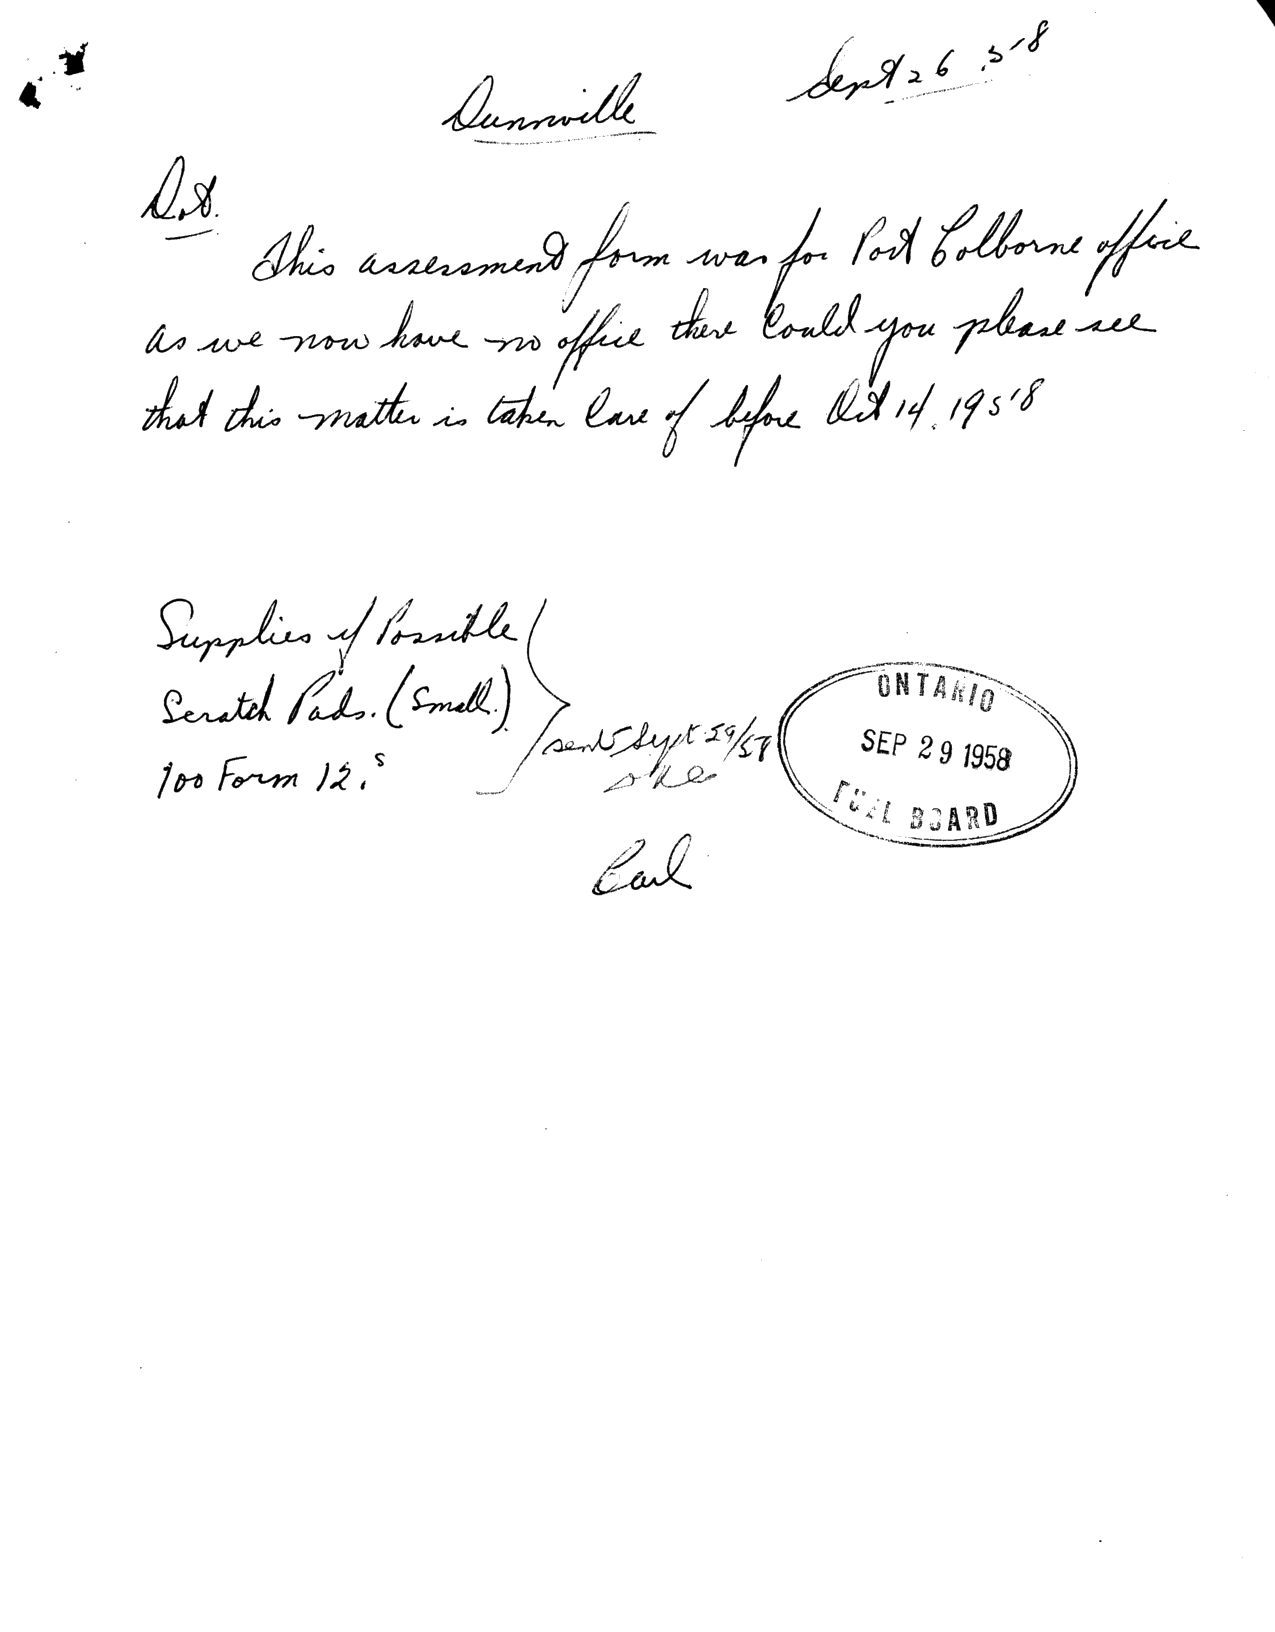 Sept 26. 58
Dunnville
Dot.
This assessment form was for Port Colborne office
as we now have no office there Could you please see
that this matter is taken Care of before Oct 14, 1958
Supplies if Possible
Scratch Pads. (Small.)
100 Form 12.s
sent Sept 29/58
ONTARIO
SEP 29 1958
FUEL BOARD
Carl